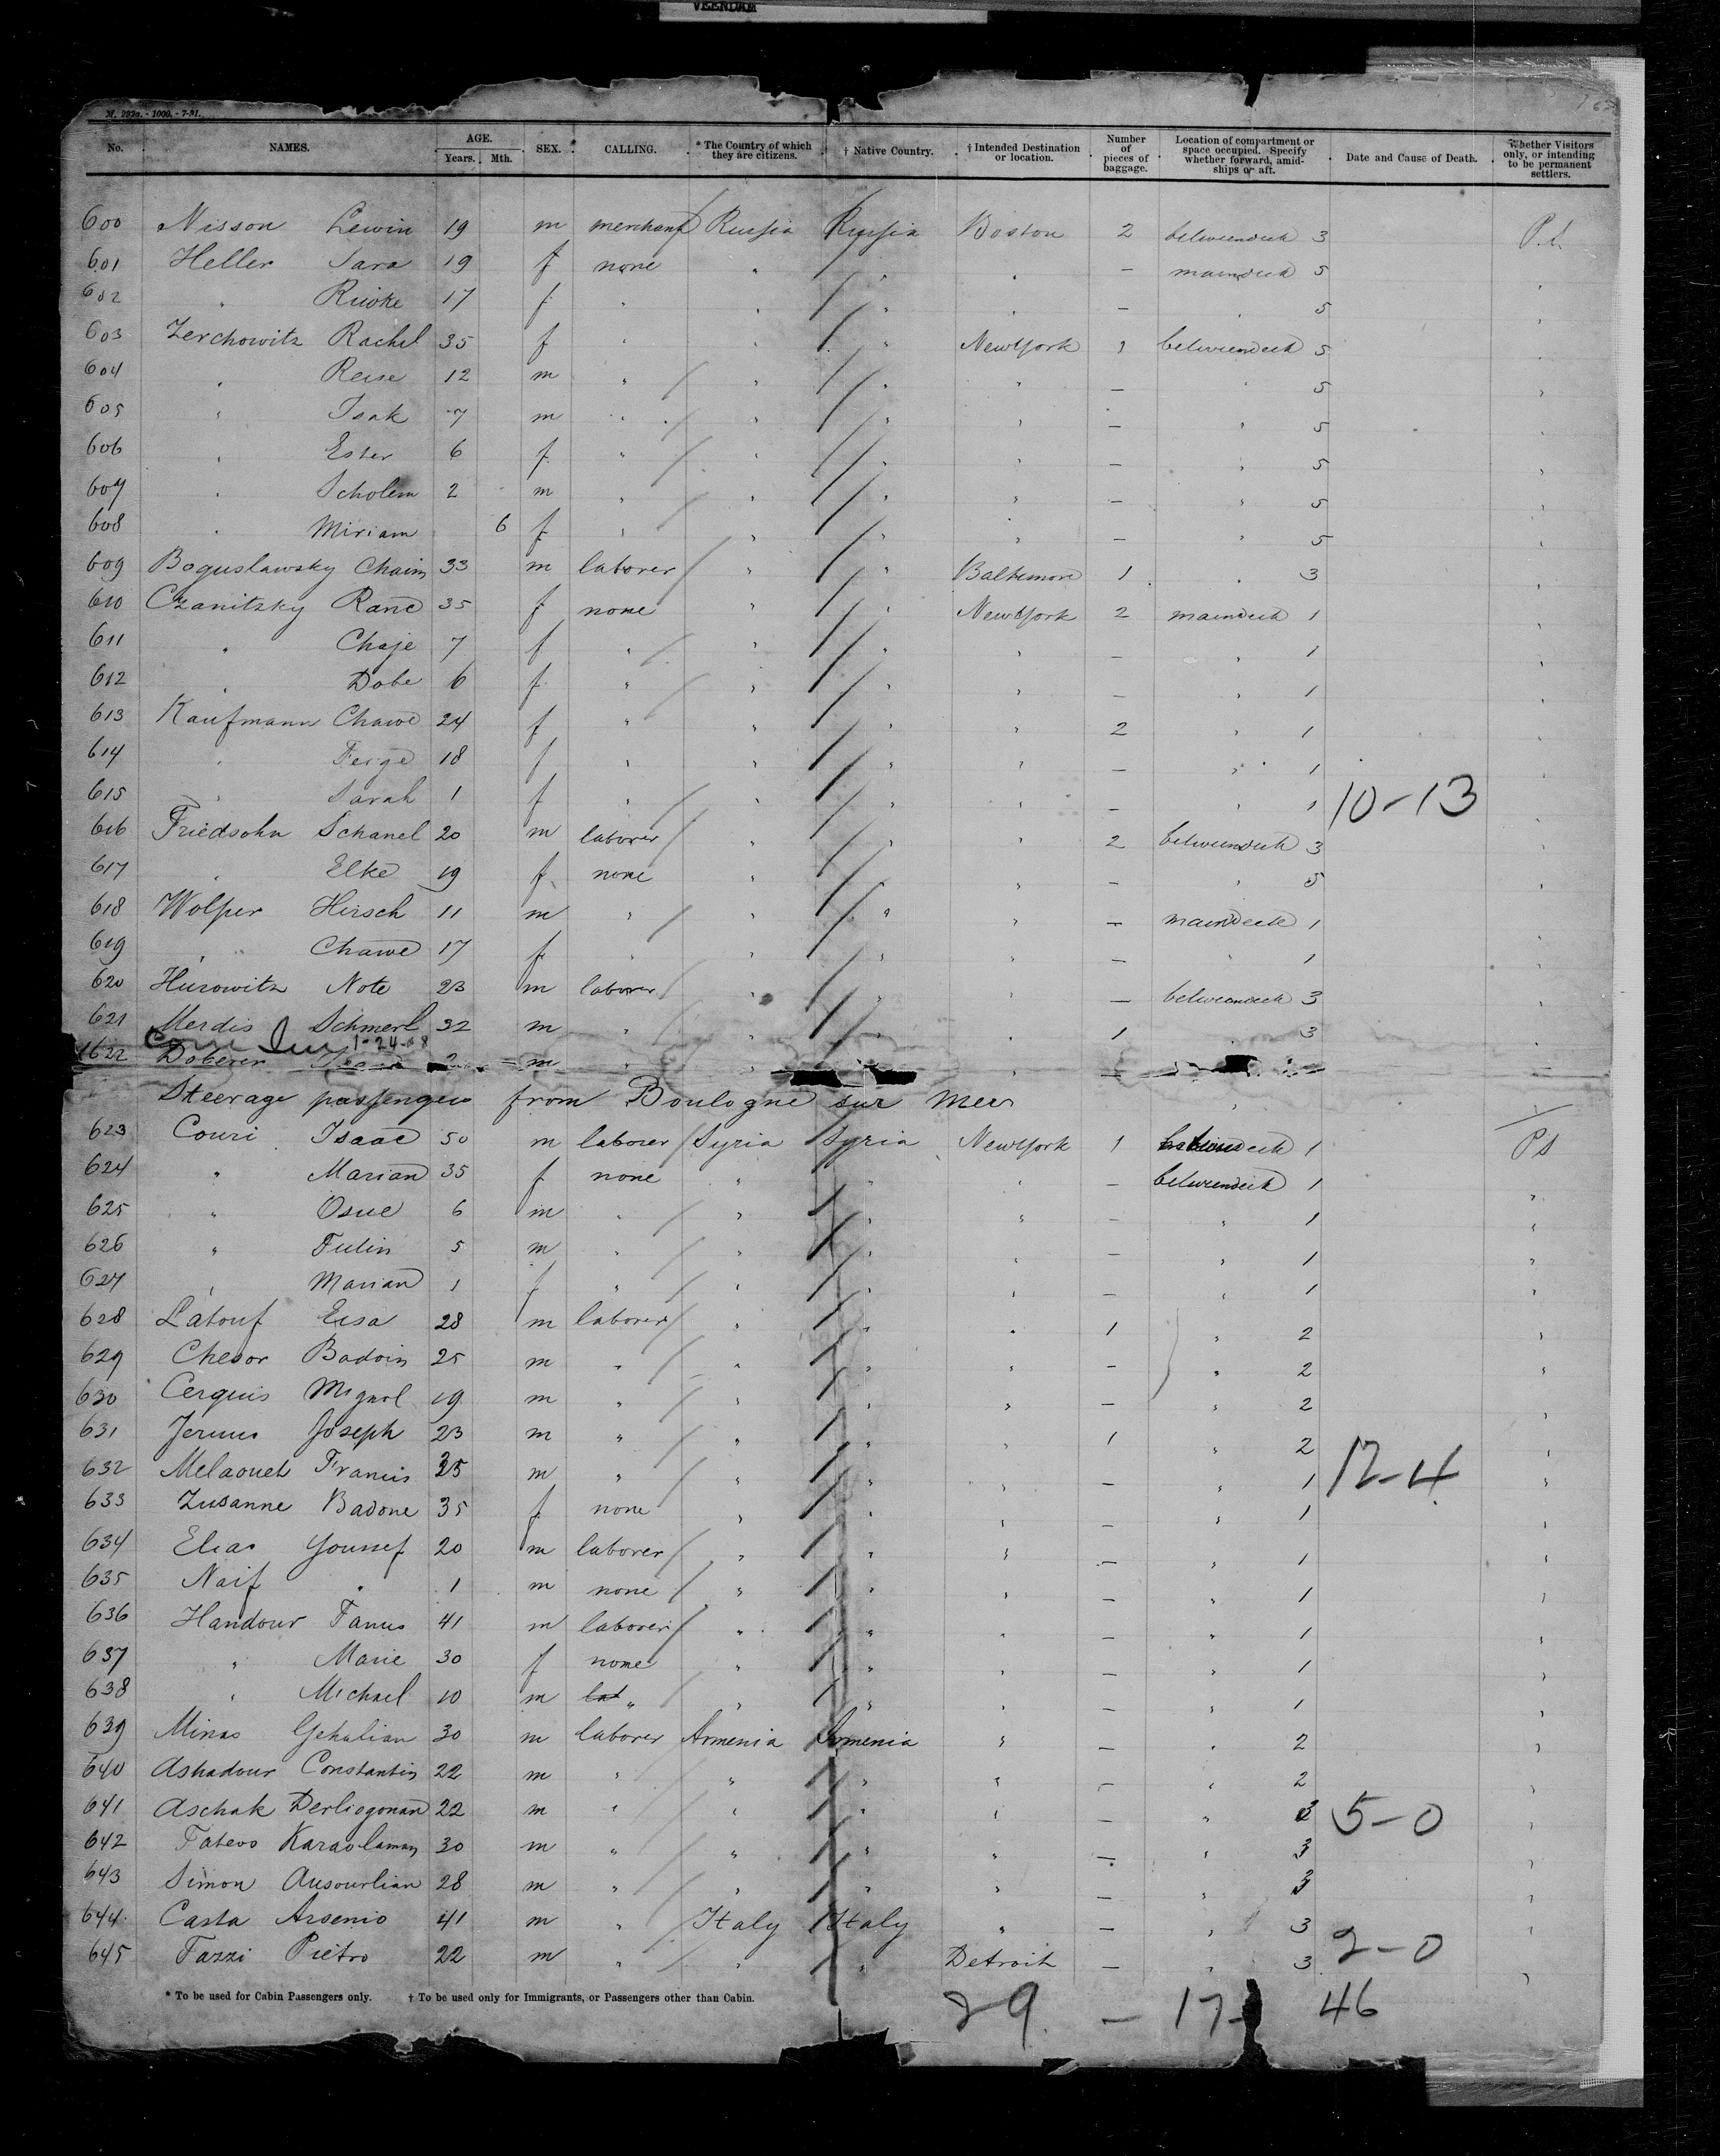 VEENDAM
M. 292a. - 1000. - 7-91.
No. NAMES. AGE. Years. Mth. SEX. CALLING. * The Country of which they are citizens. † Native Country. † Intended Destination or location. Number of pieces of baggage. Location of compartment or space occupied. Specify whether forward, amidships or aft. Date and Cause of Death. Whether Visitors only, or intending to be permanent settlers.
600 Nisson Lewin 19 m merchant Russia Russia Boston 2 betweendeck 3 P.S.
601 Heller Sara 19 f none " " " — maindeck 5 "
602 " Riwke 17 f " " " " — " 5 "
603 Zerchowitz Rachel 35 f " " " NewYork 1 betweendeck 5 "
604 " Reise 12 m " " " " — " 5 "
605 " Isak 7 m " " " " — " 5 "
606 " Ester 6 f " " " " — " 5 "
607 " Scholem 2 m " " " " — " 5 "
608 " Miriam 6 f " " " " — " 5 "
609 Boguslawsky Chaim 33 m laborer " " Baltimore 1 " 3 "
610 Czanitzky Rane 35 f none " " NewYork 2 maindeck 1 "
611 " Chaje 7 f " " " " — " 1 "
612 " Dobe 6 f " " " " — " 1 "
613 Kaufmann Chawe 24 f " " " " 2 " 1 "
614 " Feige 18 f " " " " — " 1 "
615 " Sarah 1 f " " " " — " 1 10-13 "
616 Friedsohn Schanel 20 m laborer " " " 2 betweendeck 3 "
617 " Elke 19 f none " " " — " 5 "
618 Wolper Hirsch 11 m " " " " — maindeck 1 "
619 " Chawe 17 f " " " " — " 1 "
620 Hurowitz Note 23 m laborer " " " — betweendeck 3 "
621 Merdis Schmerl 32 m " " " " 1 " 3 "
1-24-08
622 Doberer m
Steerage passengers from Boulogne sur Mer
623 Couri Isaac 50 m laborer Syria Syria NewYork 1 betweendeck 1 PS
624 " Marian 35 f none " " " — betweendeck 1 "
625 " Osue 6 m " " " " — " 1 "
626 " Fulin 5 m " " " " — " 1 "
627 " Marian 1 f " " " " — " 1 "
628 Latouf Eisa 28 m laborer " " " 1 " 2 "
629 Chesor Badoin 25 m " " " " — " 2 "
630 Cerquis Mignol 19 m " " " " — " 2 "
631 Joseph 23 m " " " " 1 " 2 "
632 Melaouet Francis 25 m " " " " — " 1 12-4 "
633 Zusanne Badone 35 f none " " " — " 1 "
634 Elias Youssef 20 m laborer " " " — " 1 "
635 Naif " 1 m none " " " — " 1 "
636 Handour Fanus 41 m laborer " " " — " 1 "
637 " Marie 30 f none " " " — " 1 "
638 " Michael 10 m lab " " " " — " 1 "
639 Minas Gehalian 30 m laborer Armenia Armenia " — " 2 "
640 Ashadour Constantin 22 m " " " " — " 2 "
641 Aschak Derliogonan 22 m " " " " — " 3 5-0 "
642 Fateos Karaolaman 30 m " " " " — " 3 "
643 Simon Ausourlian 28 m " " " " — " 3 "
644 Casta Arsenio 41 m " Italy Italy " — " 3 "
645 Fazzi Pietro 22 m " " " Detroit — " 3 2-0 "
* To be used for Cabin Passengers only. † To be used only for Immigrants, or Passengers other than Cabin.
29 — 17 - 46